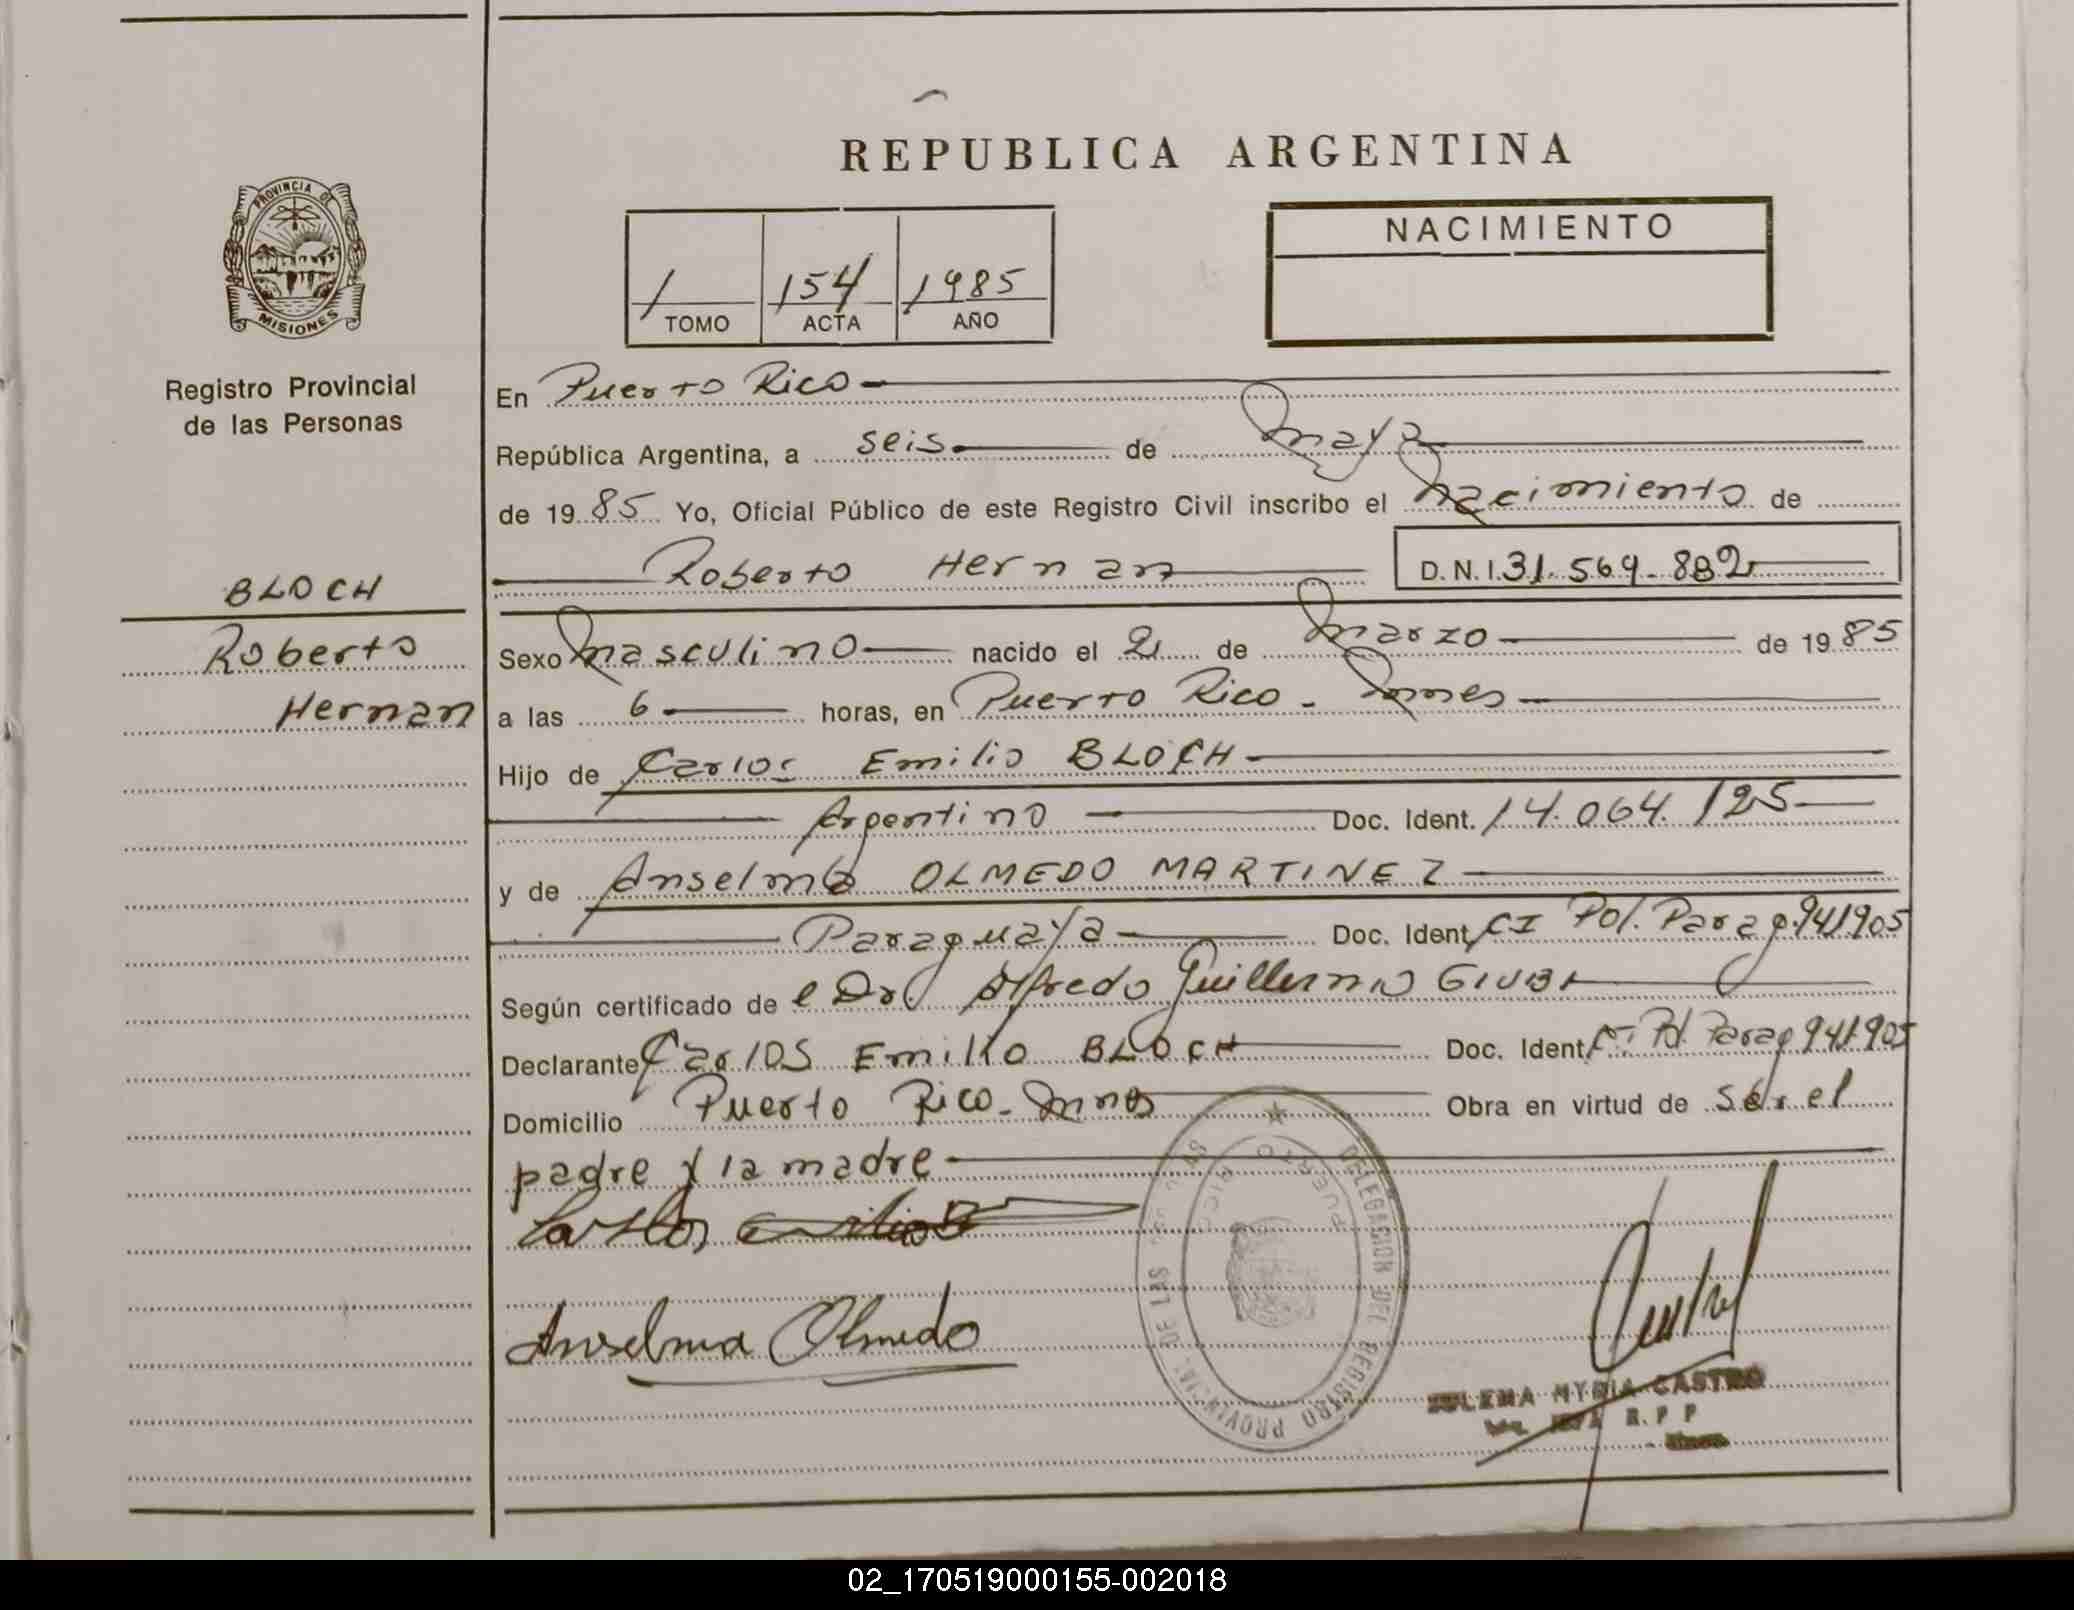 REPUBLICA ARGENTINA
PROVINCIA DE
MISIONES
Registro Provincial
de las Personas
1 154 1985
TOMO ACTA AÑO
NACIMIENTO
En Puerto Rico
República Argentina, a seis de mayo
de 1985 Yo, Oficial Público de este Registro Civil inscribo el nacimiento de
Roberto Hernan D.N.I. 31.569.882
BLOCH
Roberto
Hernan
Sexo masculino nacido el 21 de marzo de 1985
a las 6 horas, en Puerto Rico - Mnes
Hijo de Carlos Emilio BLOCH
Argentino Doc. Ident. 14.064.125
y de Anselma OLMEDO MARTINEZ
Paraguaya Doc. Ident. CI Pol. Parag. 941905
Según certificado de el Dr. Alfredo Guillermo GIUBI
Declarante Carlos Emilio BLOCH Doc. Ident. CI Pol. Parag 941.905
Domicilio Puerto Rico - Mnes Obra en virtud de ser el
padre y la madre
Carlos Emilio B
Anselma Olmedo
DELEGACION DEL REGISTRO PROVINCIAL DE LAS
PUERTO RICO
ZULEMA MYRIA CASTRO
R. P. P
02_170519000155-002018